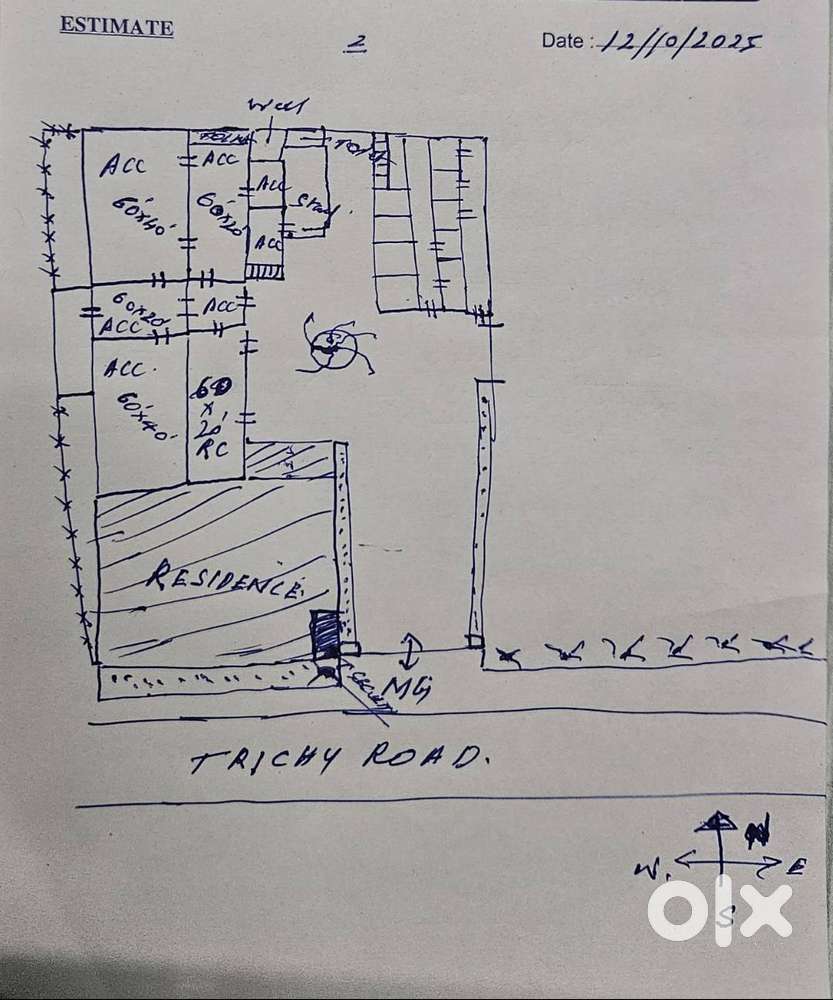 ESTIMATE
2
Date : 12/10/2025
Well
ACC
60'x40'
ACC
60'x20'
ACC
ACC
60x20
ACC
ACC
ACC.
60'x40'
60
x
20'
RC
RESIDENCE.
MG
TRICHY ROAD.
N
W.
E
S
olx